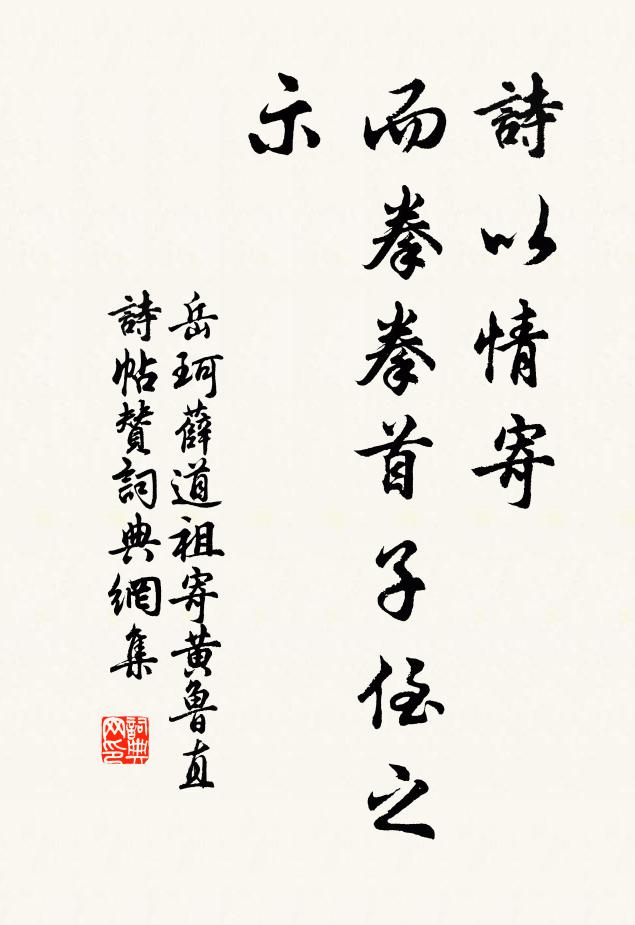 詩以情寄
而拳拳首子侄之
示
岳珂薛道祖寄黄魯直
詩帖賛詞典網集
詞典网印